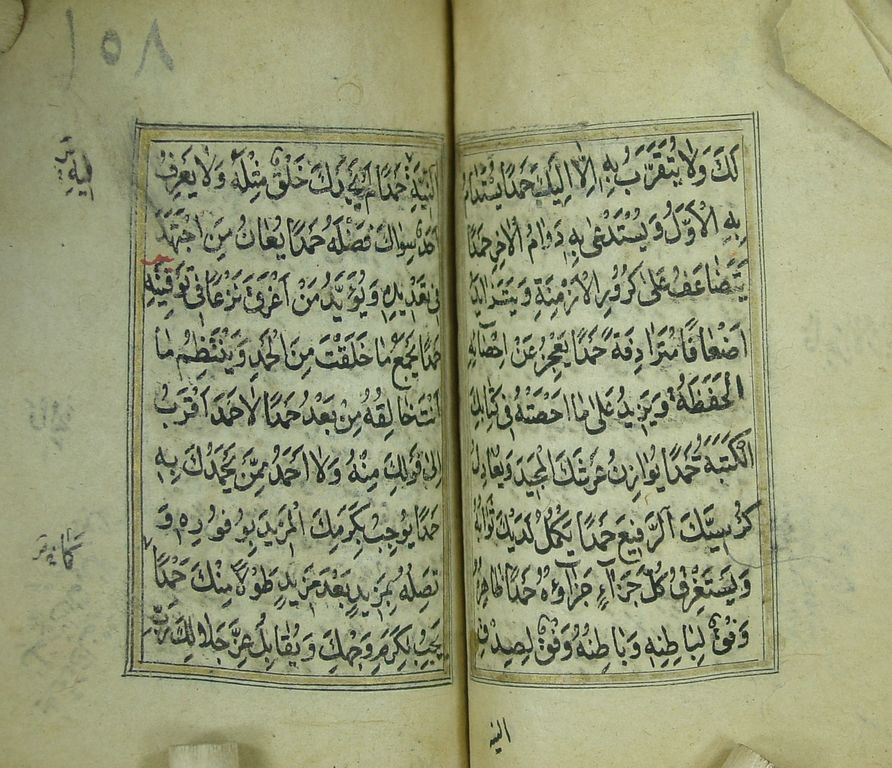 لَكَ وَلَا يُتَقَرَّبُ بِهِ إِلَّا إِلَيْكَ حَمْدًا يُسْتَدَامُ
بِهِ الْأَوَّلُ وَيُسْتَدْعَى بِهِ دَوَامُ الْآخِرِ حَمْدًا
يَتَضَاعَفُ عَلَى كُرُورِ الْأَزْمِنَةِ وَيَتَزَايَدُ
أَضْعَافًا مُتَرَادِفَةً حَمْدًا يَعْجِزُ عَنْ إِحْصَائِهِ
الْحَفَظَةُ وَيَزِيدُ عَلَى مَا أَحْصَتْهُ فِي كِتَابِكَ
الْكَتَبَةُ حَمْدًا يُوَازِنُ عَرْشَكَ الْمَجِيدَ وَيُعَادِلُ
كُرْسِيَّكَ الرَّفِيعَ حَمْدًا يَكْمُلُ لَدَيْكَ ثَوَابُهُ
وَيَسْتَغْرِقُ كُلَّ جَزَآءٍ جَزَآؤُهُ حَمْدًا ظَاهِرُهُ
وَفْقٌ لِبَاطِنِهِ وَبَاطِنُهُ وَفْقٌ لِصِدْقِ
النية
١٥٨
النِّيَّةِ حَمْدًا لَمْ يَحْمَدْكَ خَلْقٌ مِثْلَهُ وَلَا يَعْرِفُ
أَحَدٌ سِوَاكَ فَضْلَهُ حَمْدًا يُعَانُ مَنِ اجْتَهَدَ
فِي تَعْدِيدِهِ وَيُؤَيَّدُ مَنْ أَغْرَقَ نَزْعًا فِي تَوْفِيَتِهِ
حَمْدًا يَجْمَعُ مَا خَلَقْتَ مِنَ الْحَمْدِ وَيَنْتَظِمُ مَا
أَنْتَ خَالِقُهُ مِنْ بَعْدُ حَمْدًا لَا حَمْدَ أَقْرَبُ
إِلَى قَوْلِكَ مِنْهُ وَلَا أَحْمَدَ مِمَّنْ يَحْمَدُكَ بِهِ
حَمْدًا يُوجِبُ بِكَرَمِكَ الْمَزِيدَ بِوُفُورِهِ وَ
تَصِلُهُ بِمَزِيدٍ بَعْدَ مَزِيدٍ طَوْلًا مِنْكَ حَمْدًا
يَجِبُ لِكَرَمِ وَجْهِكَ وَيُقَابِلُ عِزَّ جَلَالِكَ رَبِّ